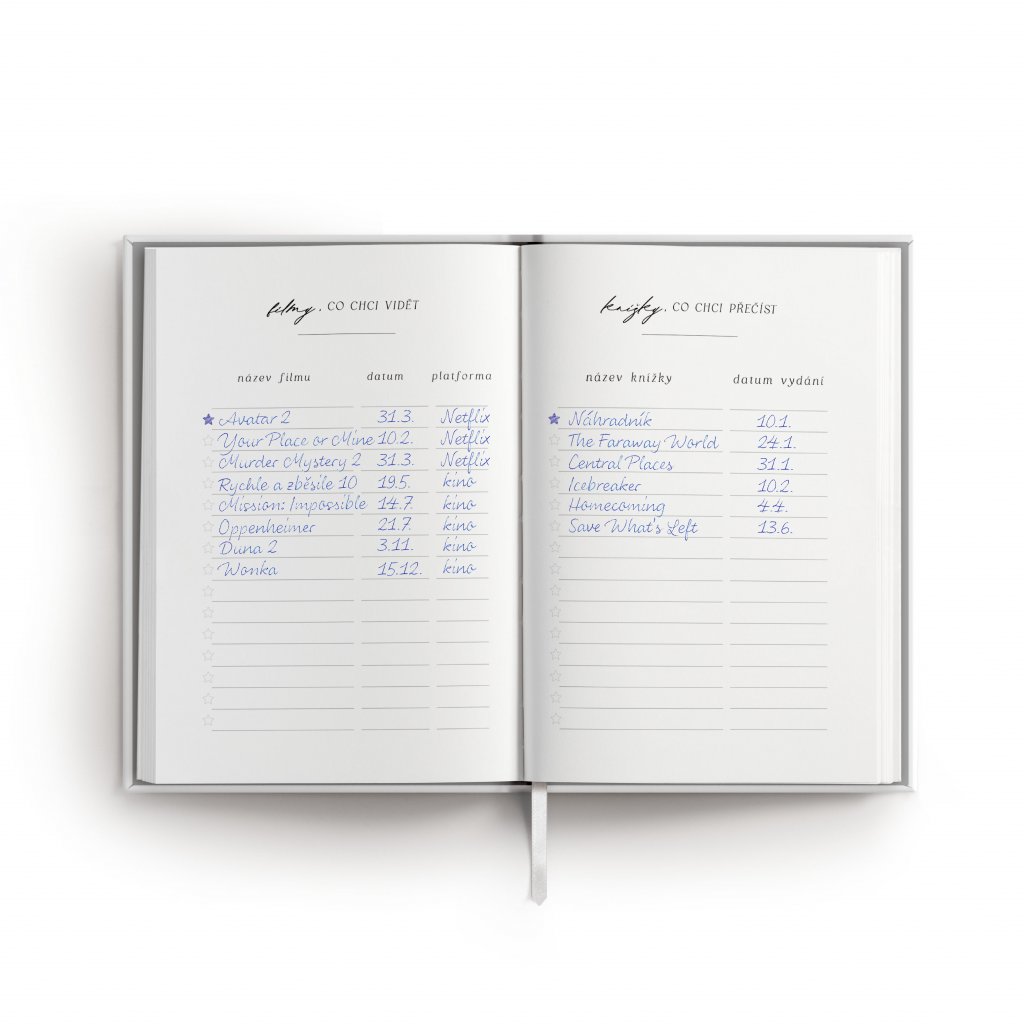 filmy, CO CHCI VIDĚT
název filmu datum platforma
Avatar 2 31.3. Netflix
Your Place or Mine 10.2. Netflix
Murder Mystery 2 31.3. Netflix
Rychle a zběsile 10 19.5. kino
Mission: Impossible 14.7. kino
Oppenheimer 21.7. kino
Duna 2 3.11. kino
Wonka 15.12. kino
knížky, CO CHCI PŘEČÍST
název knížky datum vydání
Náhradník 10.1.
The Faraway World 24.1.
Central Places 31.1.
Icebreaker 10.2.
Homecoming 4.4.
Save What's Left 13.6.